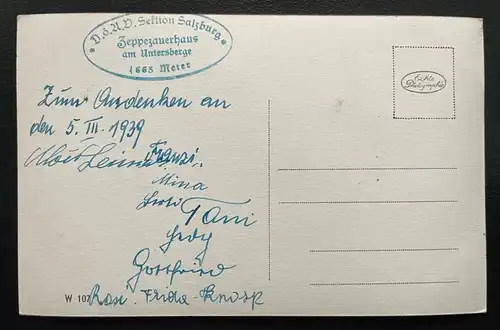 D.d.A.V. Sektion Salzburg.
Zeppezauerhaus
am Untersberge
1663 Meter
Echte
Photographie
Zum Andenken an
den 5. III. 1939
Franzi.
Mina
Tani
Hedy
Gottfried
W 107
Rosi. Frida Knosp